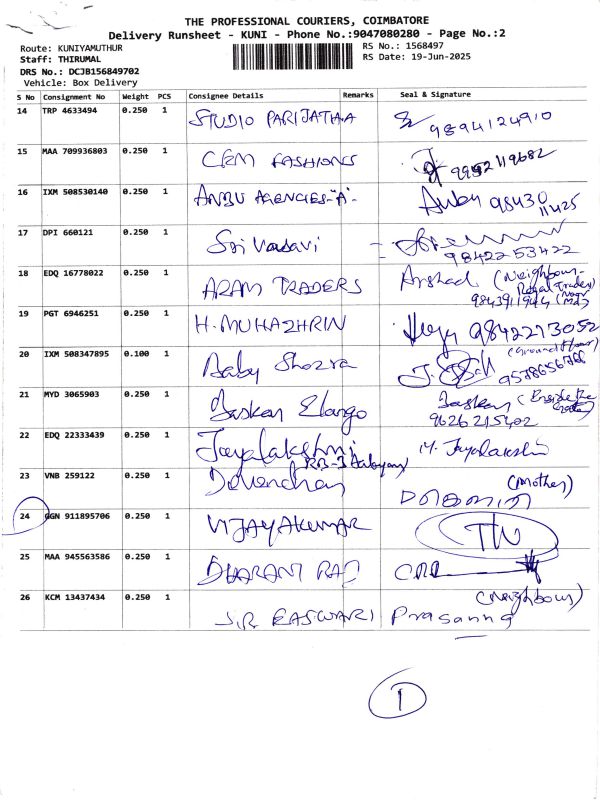 THE PROFESSIONAL COURIERS, COIMBATORE
Delivery Runsheet - KUNI - Phone No.:9047080280 - Page No.:2
Route: KUNIYAMUTHUR
RS No.: 1568497
Staff: THIRUMAL
RS Date: 19-Jun-2025
DRS No.: DCJB156849702
Vehicle: Box Delivery
S No Consignment No Weight PCS Consignee Details Remarks Seal & Signature
14 TRP 4633494 0.250 1 STUDIO PARIJATHAA 9894124910
15 MAA 709936803 0.250 1 CFM FASHIONS 9952119682
16 IXM 508530140 0.250 1 ANBU AGENCIES-"A"- Anbu 98430
11425
17 DPI 660121 0.250 1 Sri Vasavi
9842253422
18 EDQ 16778022 0.250 1 ARAM TRADERS Arshad (Neighbour-
Royal Traders)
19 PGT 6946251 0.250 1 H. MUHAZHRIN 9842273052
20 IXM 508347895 0.100 1 Baby (Ground floor)
9578656766
21 MYD 3065903 0.250 1 Baskar Elango Baskar (Inside the
9626215402
22 EDQ 22333439 0.250 1 Jayalakshmi M. Jayalakshmi
23 VNB 259122 0.250 1 Devendran (Mother)
24 GGN 911895706 0.250 1 VIJAYAKUMAR
25 MAA 945563586 0.250 1 DHARANI RAJ
26 KCM 13437434 0.250 1 J.R EASWARI Prasanna (Neighbour)
1